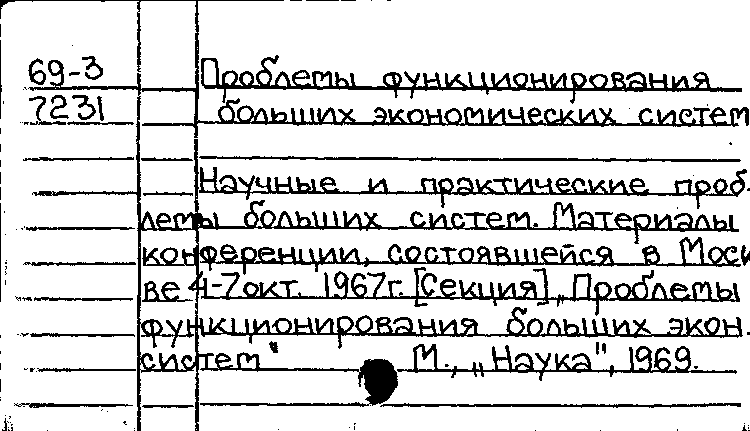 69-3 Проблемы функционирования
7231 больших экономических систем
Научные и практические проб-
лемы больших систем. Материалы
конференции, состоявшейся в Моск
ве 4-7 окт. 1967г. [Секция] „Проблемы
функционирования больших экон.
систем" М., „Наука", 1969.